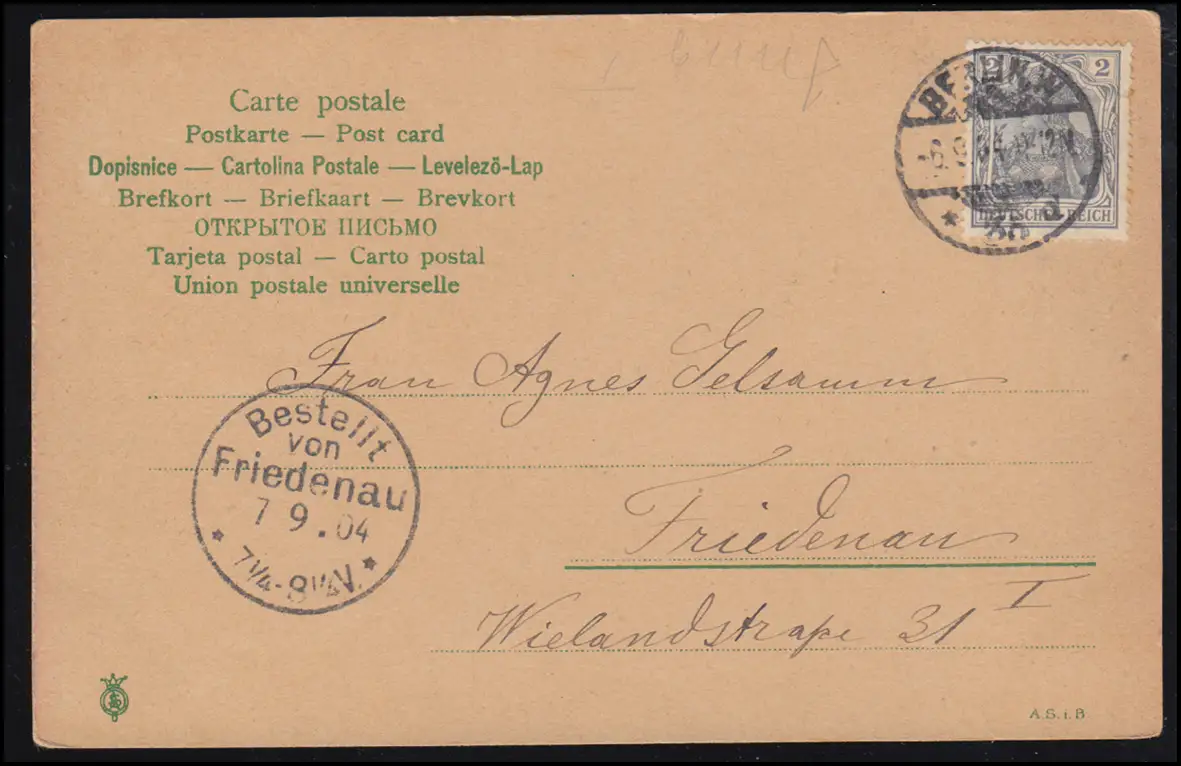 Carte postale
Postkarte — Post card
Dopisnice — Cartolina Postale — Levelezõ-Lap
Brefkort — Briefkaart — Brevkort
ОТКРЫТОЕ ПИСЬМО
Tarjeta postal — Carto postal
Union postale universelle
2 2
DEUTSCHES REICH
BERLIN.W
Frau Agnes Gelsamm
Bestellt
von
Friedenau
7 9.04
* 7¼-8¼V. *
Friedenau
Wielandstraße 31 I
A.S.i.B.